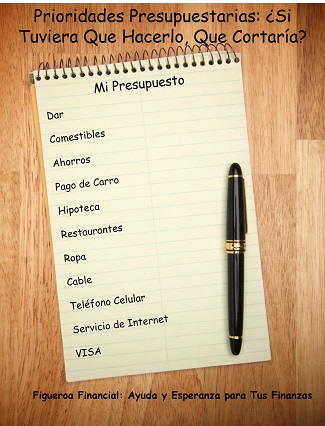 Prioridades Presupuestarias: ¿Si
Tuviera Que Hacerlo, Que Cortaría?
Mi Presupuesto
Dar
Comestibles
Ahorros
Pago de Carro
Hipoteca
Restaurantes
Ropa
Cable
Teléfono Celular
Servicio de Internet
VISA
Figueroa Financial: Ayuda y Esperanza para Tus Finanzas